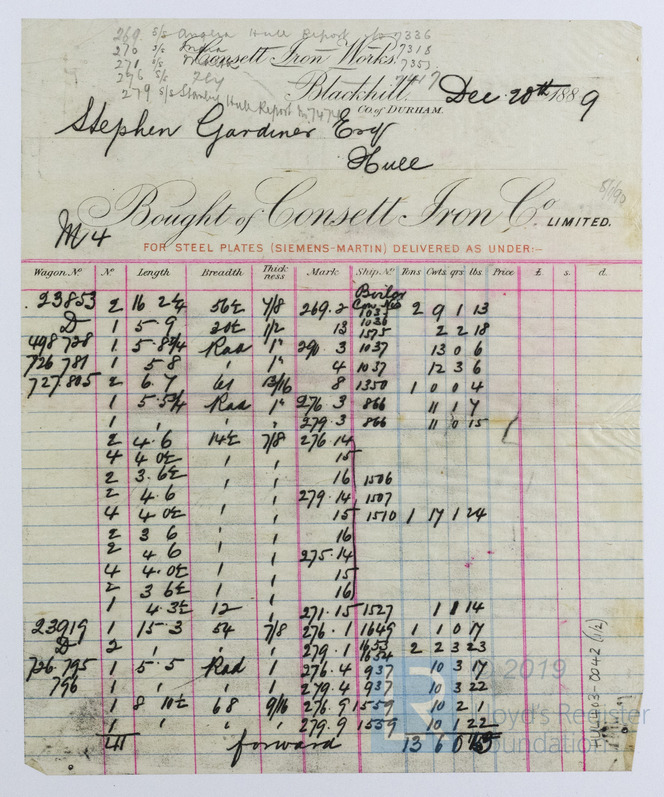 269 S/S Anglia Hull Report No 7336
270 S/S India 7318
271 S/S 7353
276 S/S 7417
279 S/S Hull Report No 7474
Consett Iron Works,
Blackhill,
Co. of DURHAM.
Dec 20th 1889
Stephen Gardiner Esq
Hull
M4
Bought of Consett Iron Co. LIMITED.
FOR STEEL PLATES (SIEMENS-MARTIN) DELIVERED AS UNDER:-
Wagon. No No Length Breadth Thickness Mark Ship. No Tons Cwts. qrs lbs Price £ s. d.
Boiler
23853 2 16 2¼ 56½ 7/8 269.2 1035 2 9 1 13
1036
D 1 5-9 20½ 1/2 13 1575 2 2 18
498728 1 5-8¾ Rad 1" 290.3 1037 13 0 6
726781 1 5 8 " 1" 4 1037 12 3 6
727.805 2 6.7 61 13/16 8 1350 1 0 0 4
1 5.5¾ Rad 1" 276 3 866 11 1 7
1 " " " 279.3 866 11 0 15
2 4.6 14½ 7/8 276.14
4 4 0½ " " 15
2 3.6½ " " 16 1506
2 4.6 " " 279.14 1507
4 4 0½ " " 15 1510 1 17 1 24
2 3 6 " 16
2 4 6 " " 275.14
4 4.0½ " " 15
2 3 6½ " " 16
1 4.3½ 12 " 271.15 1527 1 1 14
23919 1 15.3 54 7/8 276.1 1649 1 1 0 17
D 2 " " " 279.1 1653 2 2 3 23
1654
726.795 1 5.5 Rad 1 276.4 937 10 3 17
796 1 " " " 279.4 937 10 3 22
1 8 10½ 68 9/16 276.9 1559 10 2 1
1 " " " 279.9 1559 10 1 22
41 forward 13 6 0
© 2019
Lloyd's Register
Foundation